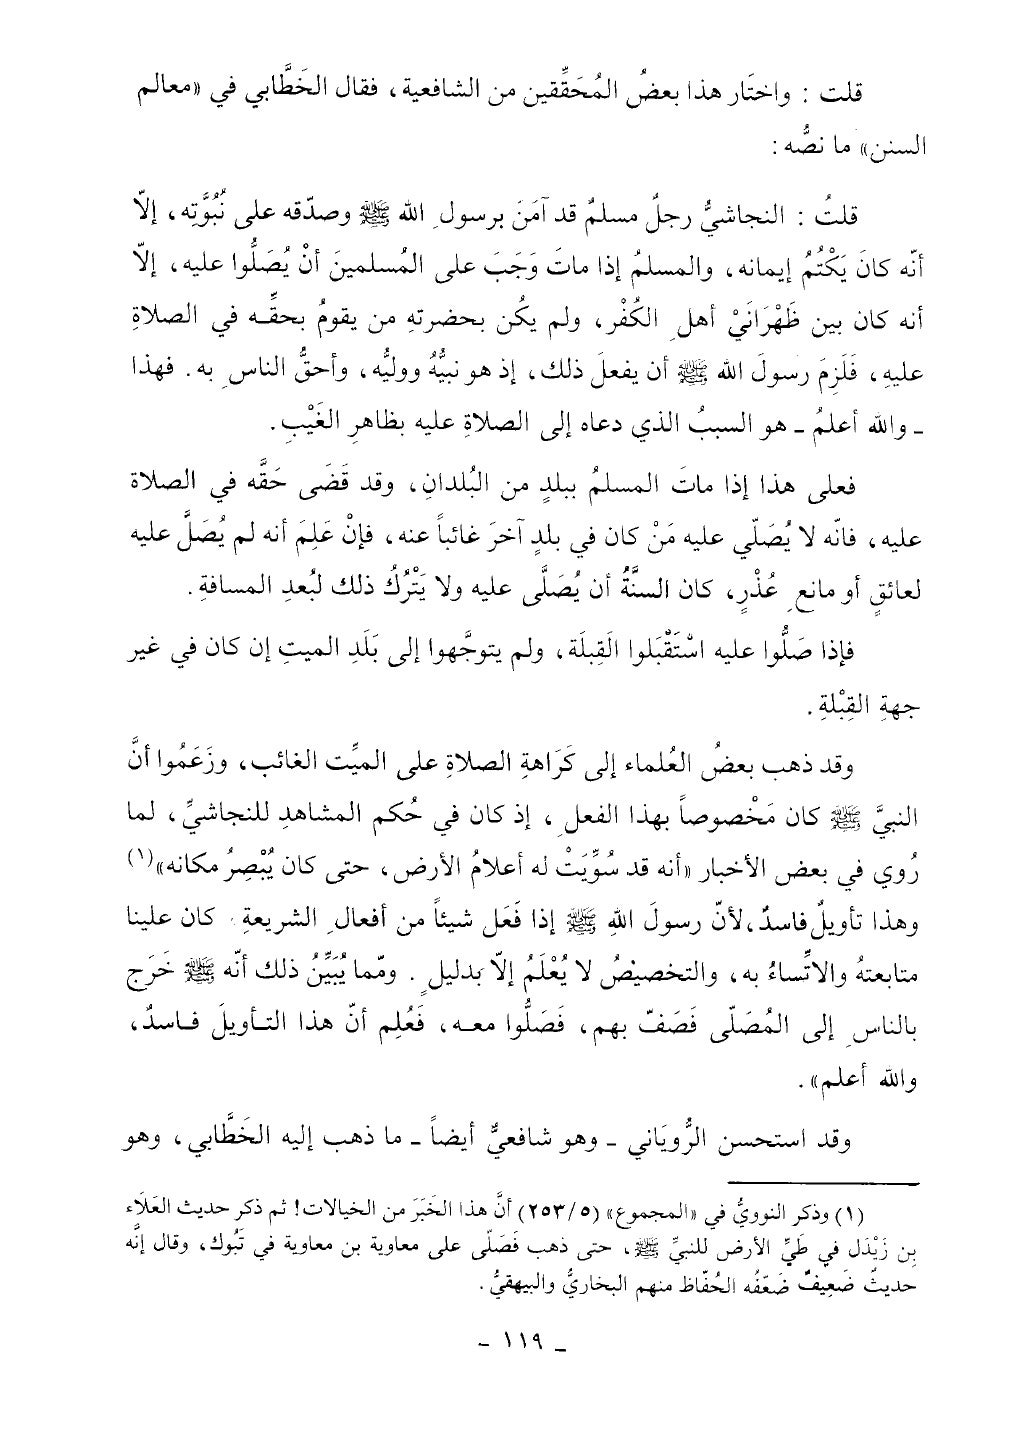 قلت : واختَار هذا بعضُ المُحَقِّقين من الشافعية ، فقال الخَطَّابي في «معالم
السنن» ما نصُّه :
قلتُ : النجاشيُّ رجلٌ مسلمٌ قد آمَنَ برسولِ الله ﷺ وصدّقه على نُبُوَّتِه ، إلاّ
أنّه كانَ يَكْتُمُ إيمانه ، والمسلمُ إذا ماتَ وَجَبَ على المُسلمينَ أنْ يُصَلُّوا عليه ، إلاّ
أنه كان بين ظَهْرَانَيْ أهلِ الكُفْر ، ولم يكُن بحضرتهِ من يقومُ بحقِّه في الصلاةِ
عليهِ ، فَلَزِمَ رسولَ الله ﷺ أن يفعلَ ذلك ، إذ هو نبيُّهُ ووليُّه ، وأحقُّ الناسِ به . فهذا
ـ والله أعلمُ ـ هو السببُ الذي دعاه إلى الصلاةِ عليه بظاهرِ الغَيْبِ .
فعلى هذا إذا ماتَ المسلمُ ببلدٍ من البُلدانِ ، وقد قَضَى حَقَّه في الصلاة
عليه ، فانّه لا يُصَلّي عليه مَنْ كان في بلدٍ آخرَ غائباً عنه ، فإنْ عَلِمَ أنه لم يُصَلَّ عليه
لعائقٍ أو مانعِ عُذْرٍ ، كان السنَّةُ أن يُصَلَّى عليه ولا يَتْرُكُ ذلك لبُعدِ المسافةِ .
فإذا صَلُّوا عليه اسْتَقْبَلوا القِبلَة ، ولم يتوجَّهوا إلى بَلَدِ الميتِ إن كان في غير
جهةِ القِبْلةِ .
وقد ذهب بعضُ العُلماء إلى كَرَاهةِ الصلاةِ على الميِّت الغائب ، وزَعَمُوا أنَّ
النبيَّ ﷺ كان مَخْصوصاً بهذا الفعلِ ، إذ كان في حُكم المشاهدِ للنجاشيِّ ، لما
رُوي في بعض الأخبار «أنه قد سُوِّيَتْ له أعلامُ الأرض ، حتى كان يُبْصِرُ مكانه»(١)
وهذا تأويلٌ فاسدٌ ، لأنّ رسولَ اللهِ ﷺ إذا فَعَل شيئاً من أفعالِ الشريعةِ كان علينا
متابعتهُ والاتِّساءُ به ، والتخصيْصُ لا يُعْلَمُ إلاّ بدليلٍ . ومّما يُبَيِّنُ ذلك أنّه ﷺ خَرَج
بالناسِ إلى المُصَلّى فَصَفّ بهم ، فَصَلُّوا معه ، فَعُلِم أنّ هذا التأويلَ فاسدٌ ،
والله أعلم» .
وقد استحسن الرُّويَاني ـ وهو شافعيٌّ أيضاً ـ ما ذهب إليه الخَطَّابي ، وهو
(١) وذكر النوويُّ في «المجموع» (٢٥٣/٥) أنَّ هذا الخَبَرَ من الخيالات! ثم ذكر حديث العَلَاء
بِن زَيْدَل في طَيِّ الأرض للنبيِّ ﷺ ، حتى ذهب فَصَلّى على معاوية بن معاوية في تَبُوك ، وقال إنَّه
حديثٌ ضَعِيفٌ ضَعّفُه الحُفّاظ منهم البخاريُّ والبيهقيُّ .
ـ ١١٩ ـ